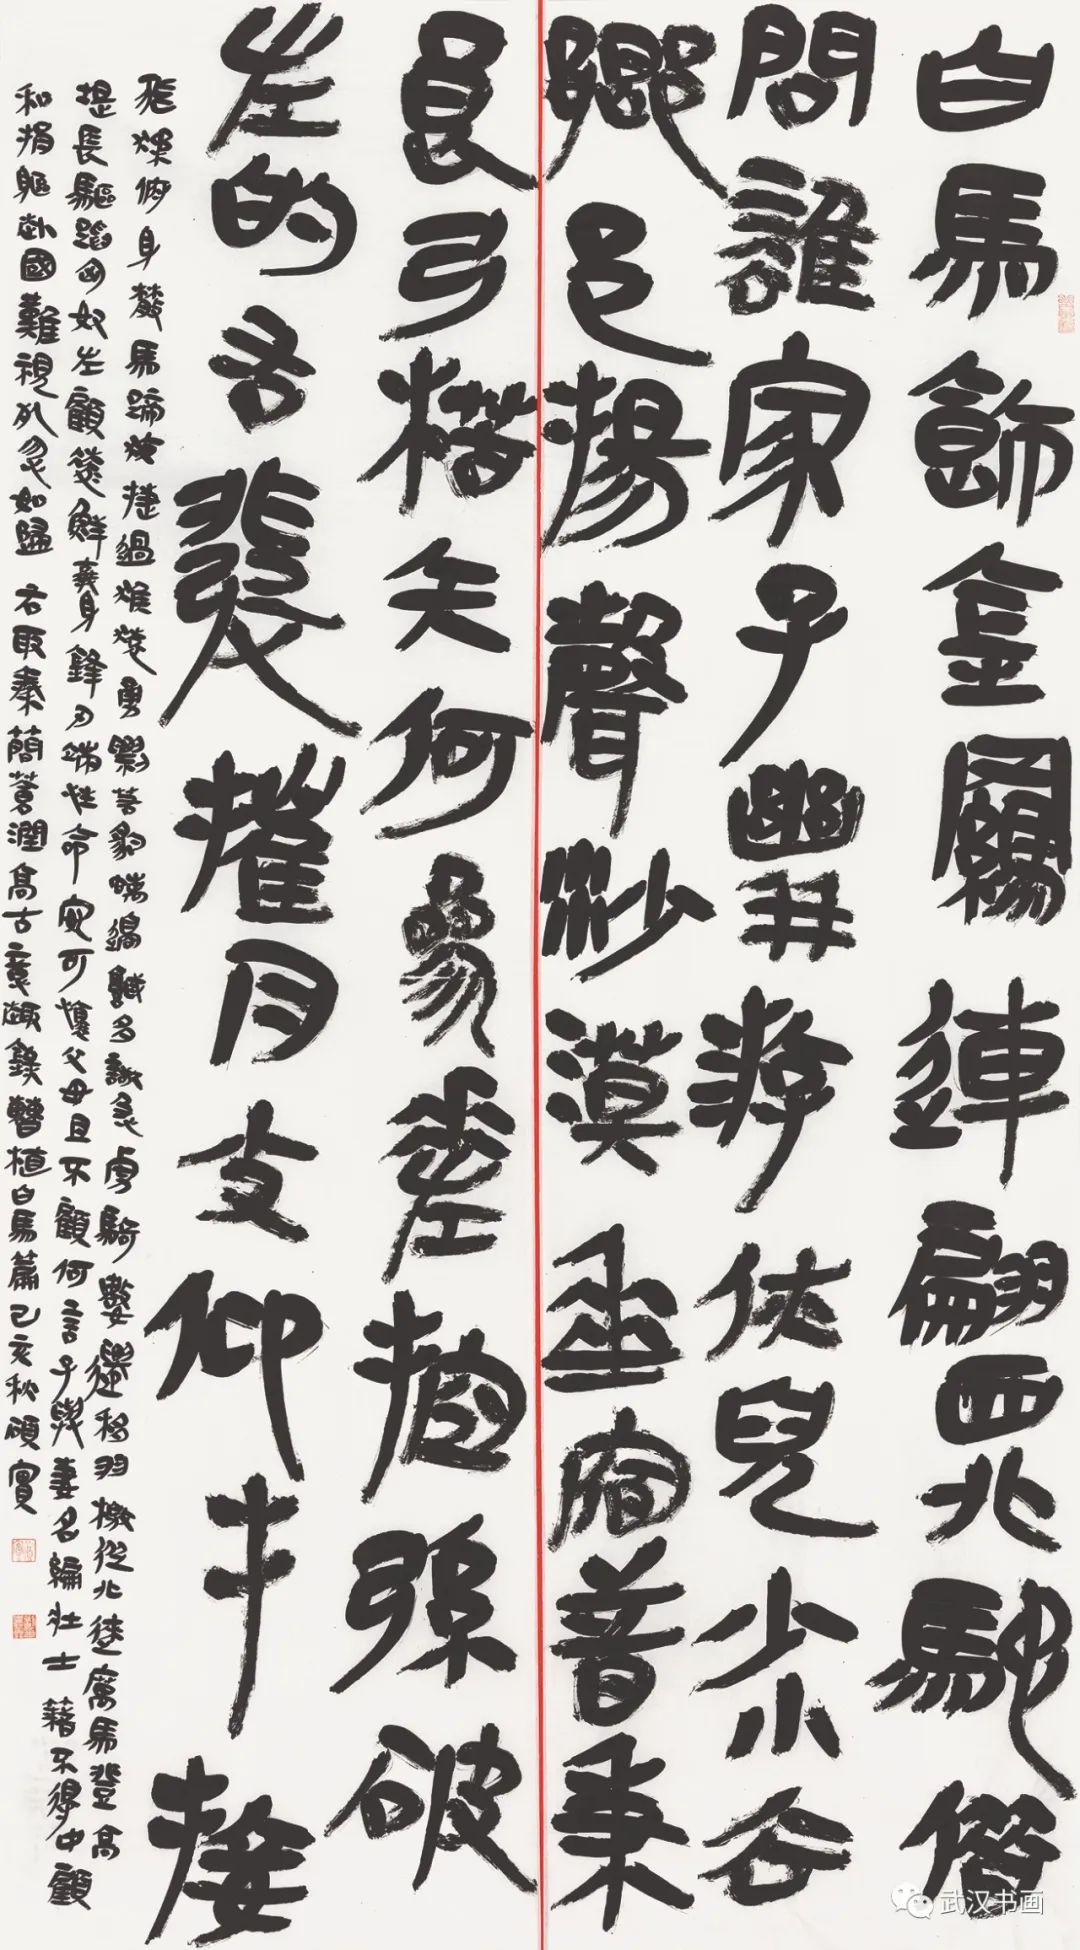 白馬飾金羈連翩西北馳借
問誰家子幽并游俠兒少小去
鄉邑揚聲沙漠垂宿昔秉
良弓楛矢何參差控弦破
左的右發摧月支仰手接
飛猱俯身散馬蹄狡捷過猴猿勇剽若豹螭邊城多警急虜騎數遷移羽檄從北來厲馬登高
堤長驅蹈匈奴左顧陵鮮卑棄身鋒刃端性命安可懷父母且不顧何言子與妻名編壯士籍不得中顧
私捐軀赴國難視死忽如歸 右取秦簡蒼潤高古意趣錄曹植白馬篇己亥秋碩實
武汉书画